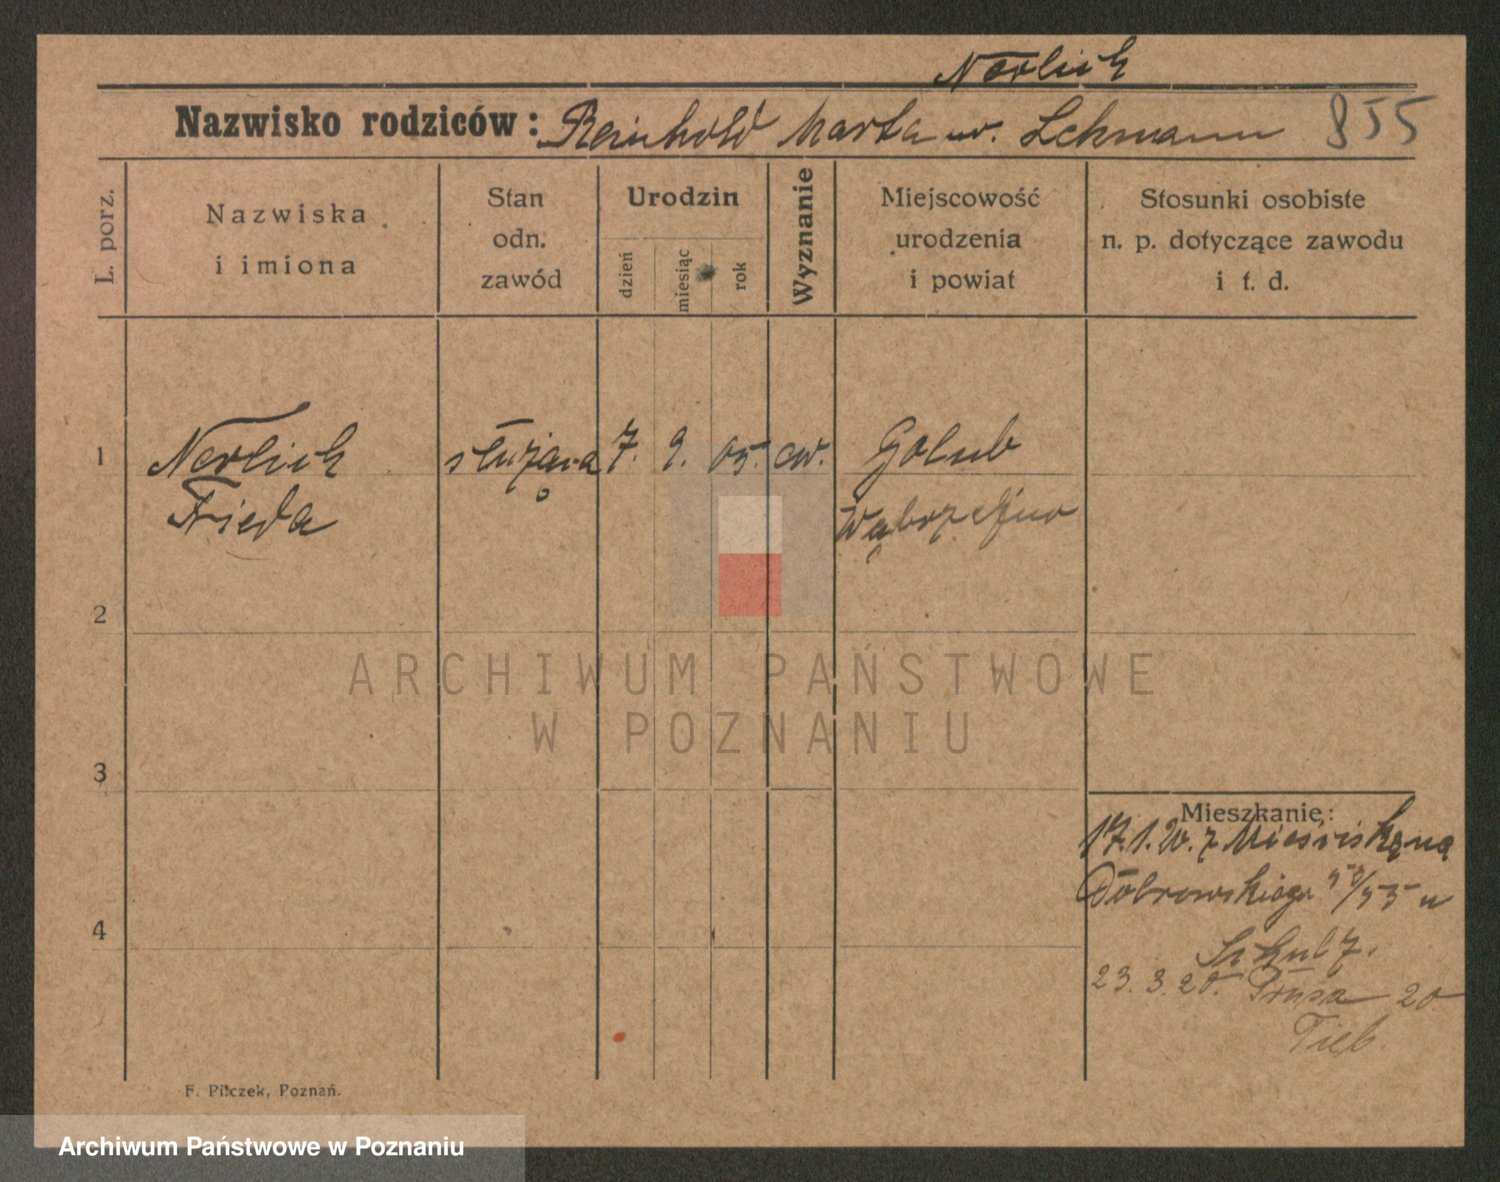 Nerlich
Nazwisko rodziców: Reinhold Marta ur. Lehmann 855
L. porz.
Nazwiska
i imiona
Stan
odn.
zawód
Urodzin
dzień
miesiąc
rok
Wyznanie
Miejscowość
urodzenia
i powiat
Stosunki osobiste
n. p. dotyczące zawodu
i t. d.
1
Nerlich
Frieda
służąca
7. 9. 05. ew.
Golub
Wąbrzeźno
2
ARCHIWUM PAŃSTWOWE
W POZNANIU
3
Mieszkanie:
17.1.20. z
Dąbrowskiego /55 u
Schulz.
4
23.3.20. Prusa 20
F. Pilczek, Poznań.
Archiwum Państwowe w Poznaniu